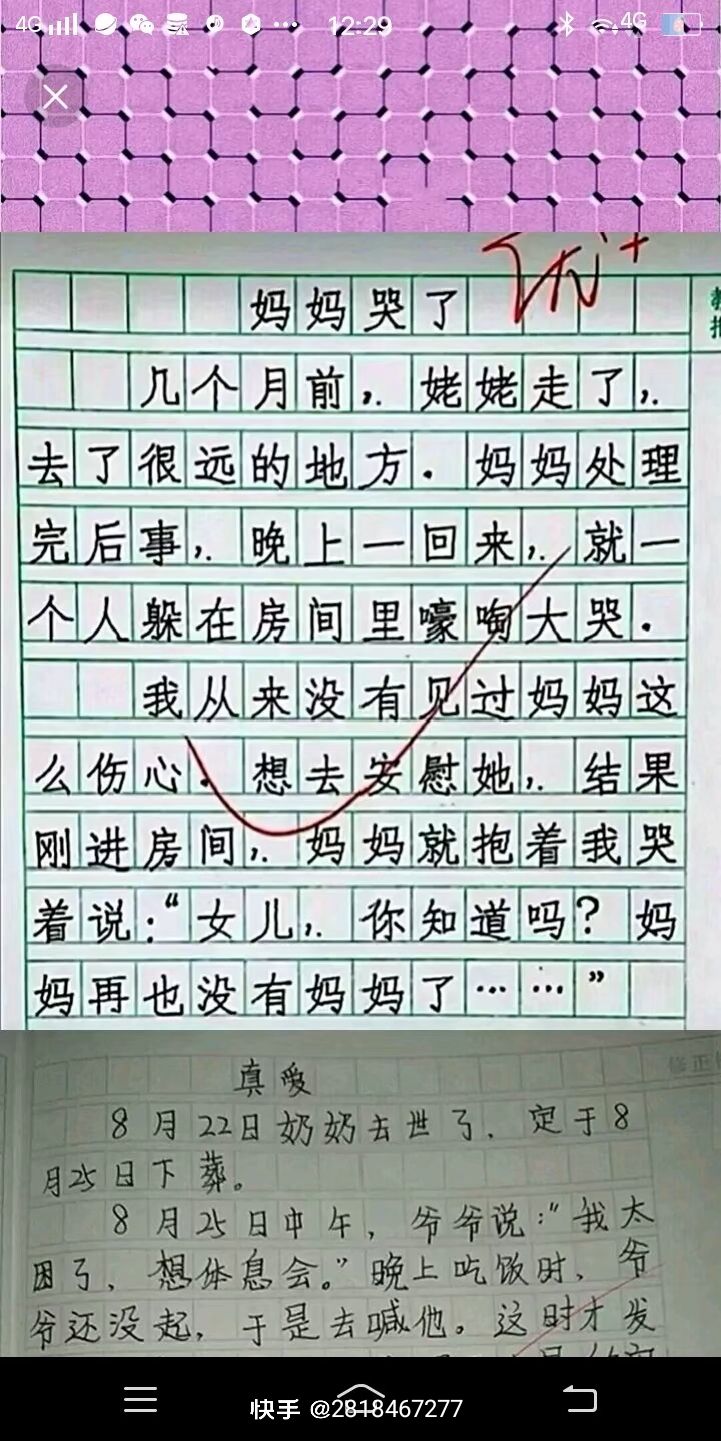 4G 12:29 4G
优+
妈妈哭了
几个月前,. 姥姥走了,.
去了很远的地方. 妈妈处理
完后事,. 晚上一回来,. 就一
个人躲在房间里嚎啕大哭.
我从来没有见过妈妈这
么伤心. 想去安慰她,. 结果
刚进房间,. 妈妈就抱着我哭
着说:“女儿,. 你知道吗? 妈
妈再也没有妈妈了……”
真爱
8月22日奶奶去世了, 定于8
月25日下葬。
8月25日中午, 爷爷说:“我太
困了, 想体息会。”晚上吃饭时, 爷
爷还没起, 于是去喊他。这时才发
快手 @2818467277